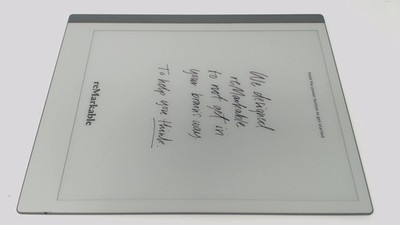 Hold the power button to get started
We designed
reMarkable
to not get in
your brain's way
To help you think.
reMarkable